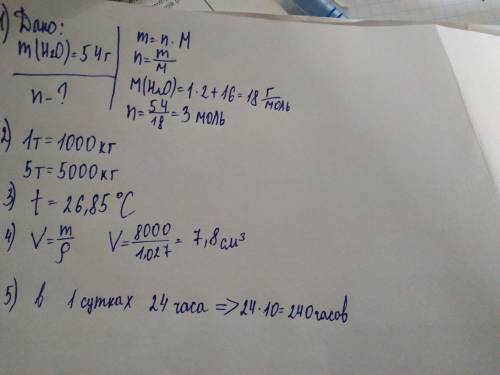 1) Дано:
m(H₂O)=54г
n-?
m=n·M
n=m/M
M(H₂O)=1·2+16=18 г/моль
n=54/18=3 моль
2) 1т=1000кг
5т=5000кг
3) t=26,85°C
4) V=m/ρ V=8000/1,027=7,8см³
5) в 1 сутках 24 часа =>24·10=240часов